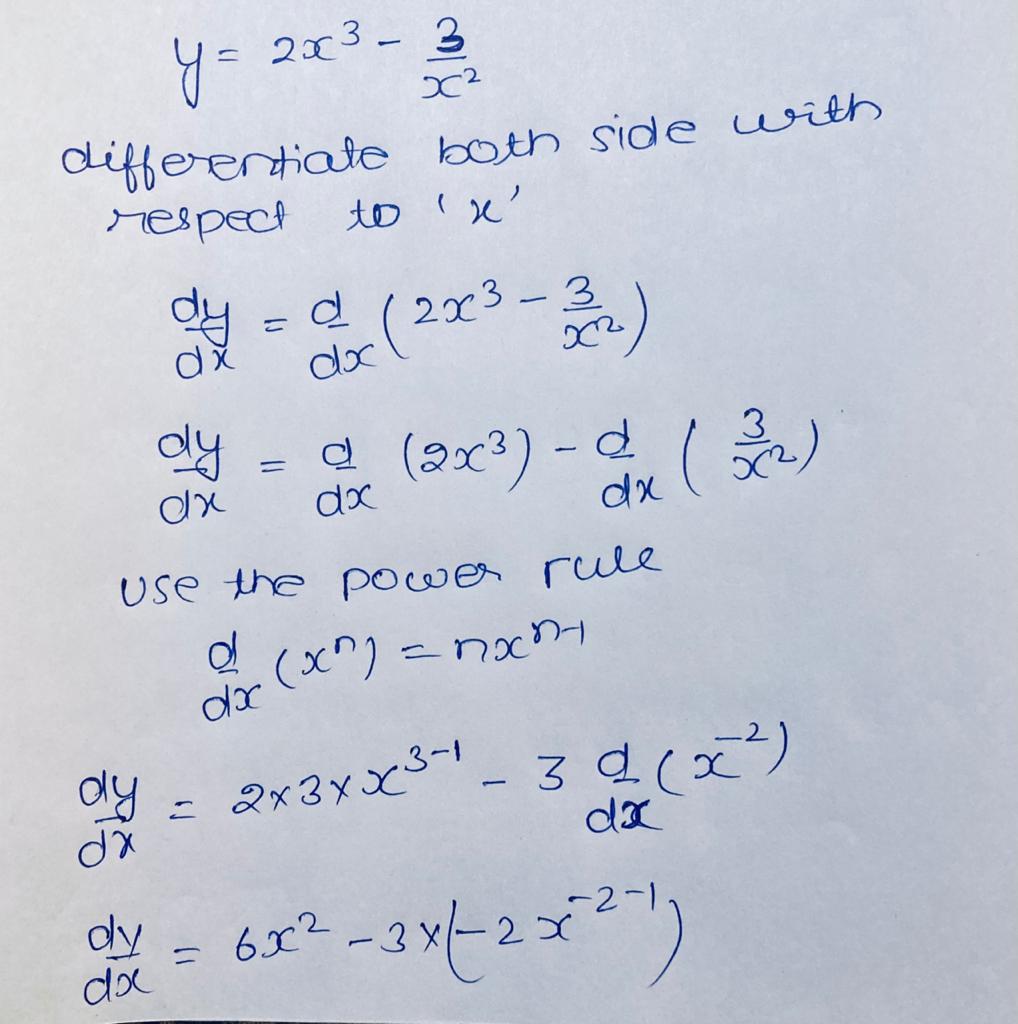 y = 2x³ - 3/x²
differentiate both side with
respect to 'x'
dy/dx = d/dx (2x³ - 3/x²)
dy/dx = d/dx (2x³) - d/dx (3/x²)
use the power rule
d/dx (xⁿ) = nxⁿ⁻¹
dy/dx = 2×3×x³⁻¹ - 3 d/dx (x⁻²)
dy/dx = 6x² - 3×(-2x⁻²⁻¹)